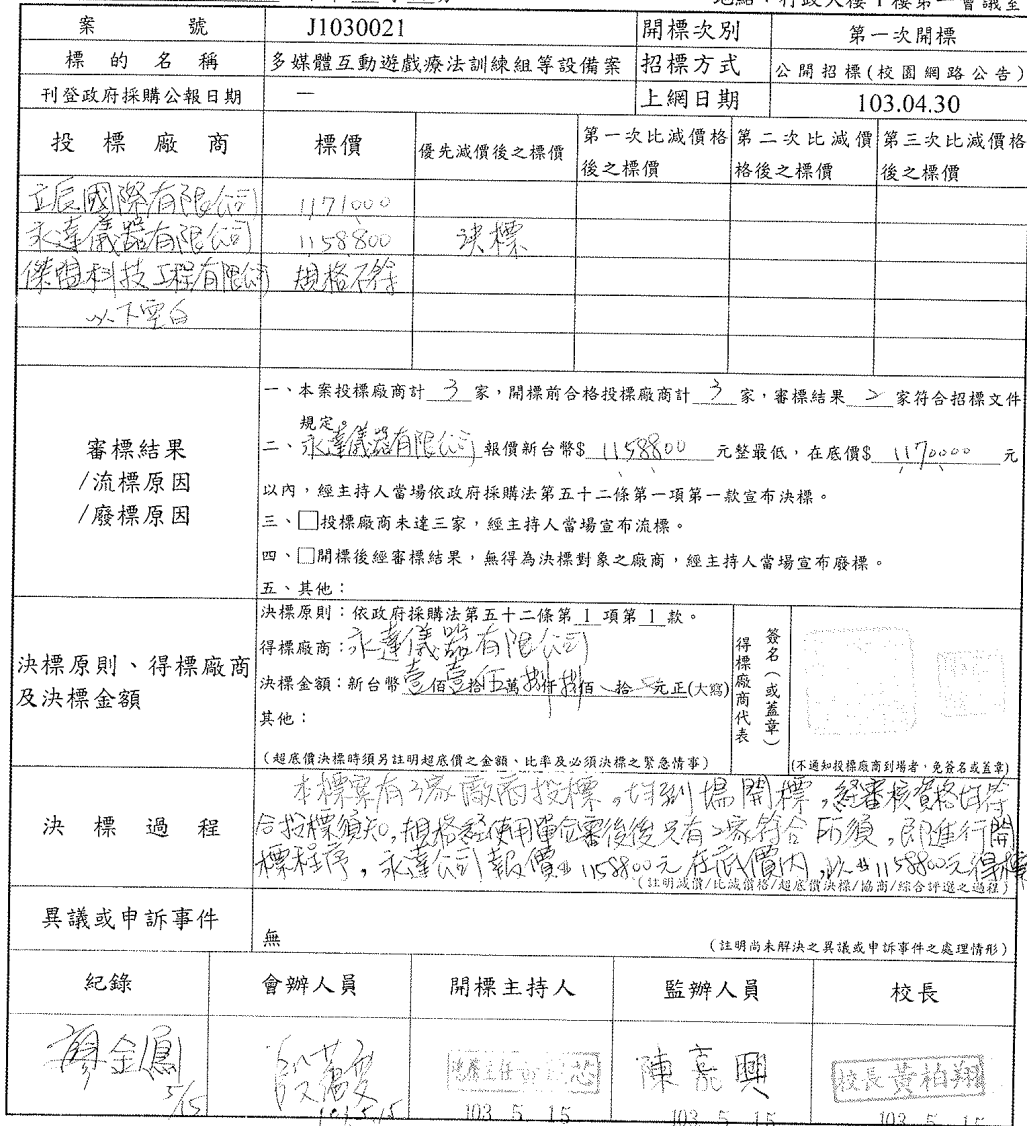 地點：行政大樓1樓第一會議室
案號 J1030021 開標次別 第一次開標
標的名稱 多媒體互動遊戲療法訓練組等設備案 招標方式 公開招標(校園網路公告)
刊登政府採購公報日期 — 上網日期 103.04.30
投標廠商 標價 優先減價後之標價 第一次比減價格後之標價 第二次比減價格後之標價 第三次比減價格後之標價
立辰國際有限公司 1171000
永達儀器有限公司 1158800 決標
傑盟科技工程有限公司 規格不符
以下空白
審標結果
/流標原因
/廢標原因
一、本案投標廠商計 3 家，開標前合格投標廠商計 3 家，審標結果 2 家符合招標文件
規定。
二、永達儀器有限公司 報價新台幣$ 1158800 元整最低，在底價$ 1170000 元
以內，經主持人當場依政府採購法第五十二條第一項第一款宣布決標。
三、□投標廠商未達三家，經主持人當場宣布流標。
四、□開標後經審標結果，無得為決標對象之廠商，經主持人當場宣布廢標。
五、其他：
決標原則、得標廠商
及決標金額
決標原則：依政府採購法第五十二條第 1 項第 1 款。
得標廠商：永達儀器有限公司
決標金額：新台幣壹佰壹拾伍萬捌仟捌佰 拾 元正(大寫)
其他：
(超底價決標時須另註明超底價之金額、比率及必須決標之緊急情事)
得標廠商代表
簽名（或蓋章）
(不通知投標廠商到場者，免簽名或蓋章)
決標過程
本標案有3家廠商投標，均到場開標，經審核資格均符
合投標須知，規格經使用單位審後後只有2家符合所須，即進行開
標程序，永達公司報價$1158800元在底價內，以$1158800元得標
(註明減價/比減價格/超底價決標/協商/綜合評選之過程)
異議或申訴事件
無
(註明尚未解決之異議或申訴事件之處理情形)
紀錄 會辦人員 開標主持人 監辦人員 校長
廖金鳳 陳亮興 校長黃柏翔
5/15 103.5.15 103. 5. 15 103. 5. 15 103. 5. 15